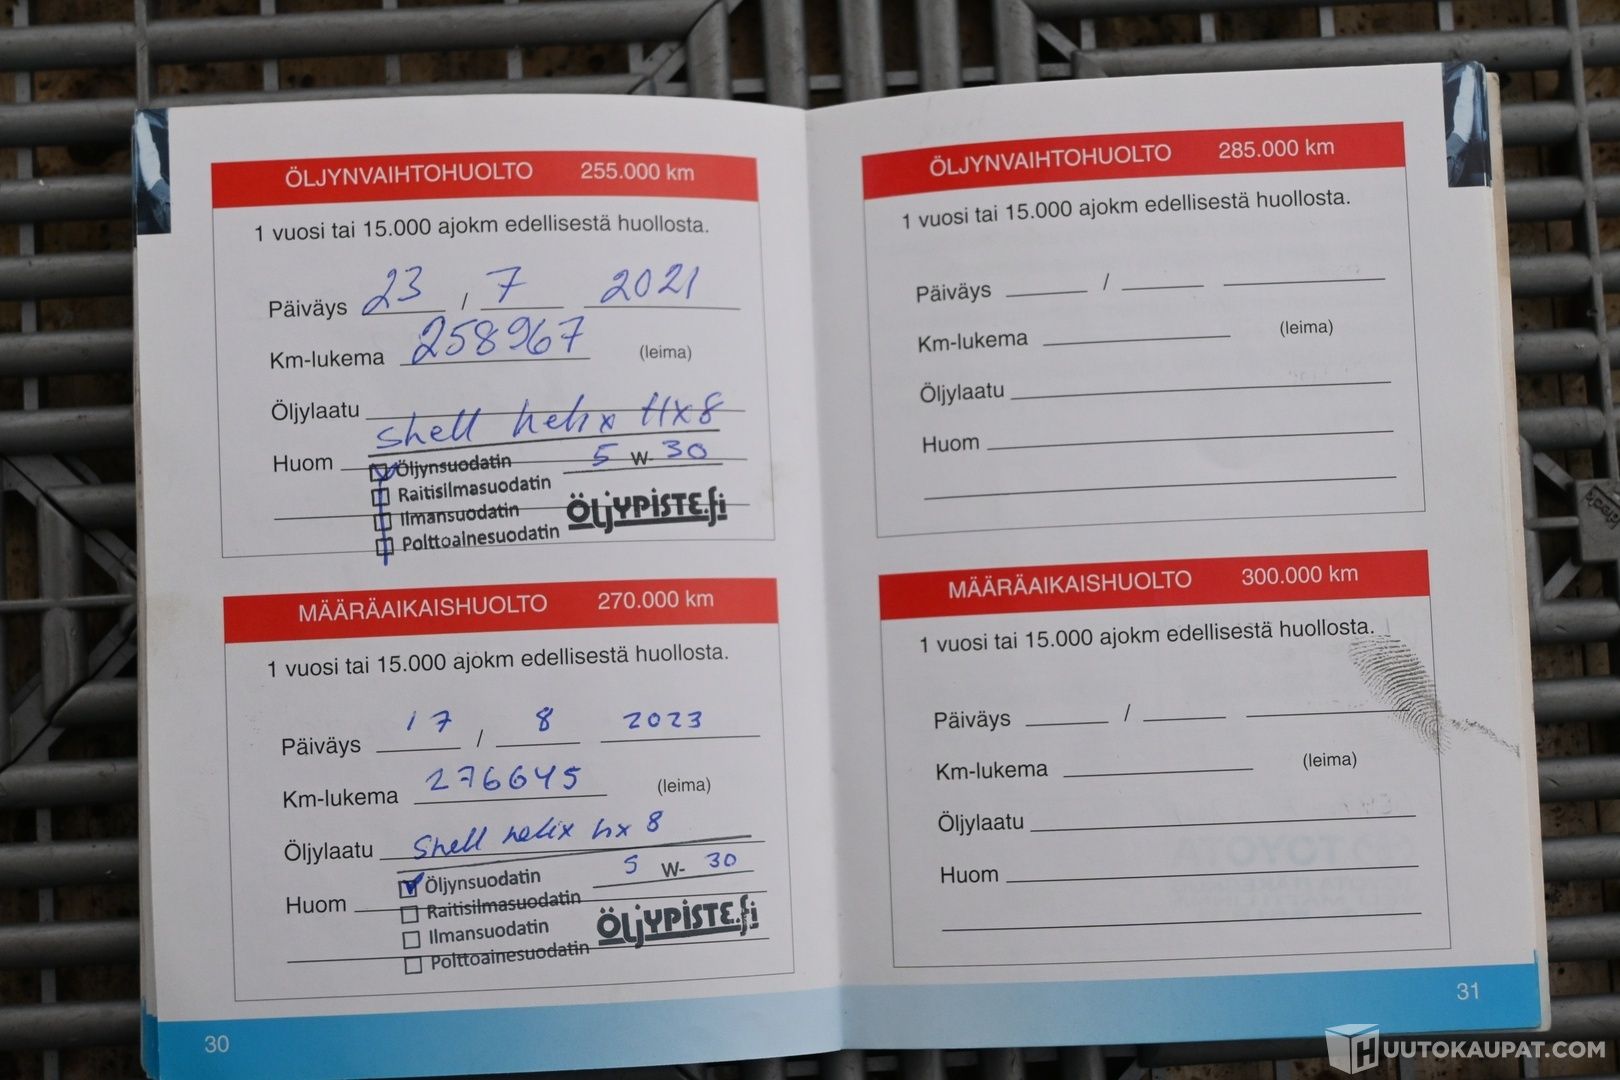 ÖLJYNVAIHTOHUOLTO 255.000 km
1 vuosi tai 15.000 ajokm edellisestä huollosta.
Päiväys 23 / 7 2021
Km-lukema 258967 (leima)
Öljylaatu shell helix Hx8
Huom
Öljynsuodatin 5 W- 30
Raitisilmasuodatin
Ilmansuodatin
Polttoainesuodatin
ÖLJYPISTE.fi
MÄÄRÄAIKAISHUOLTO 270.000 km
1 vuosi tai 15.000 ajokm edellisestä huollosta.
Päiväys 17 / 8 2023
Km-lukema 276645 (leima)
Öljylaatu Shell helix hx 8
Huom
Öljynsuodatin 5 W- 30
Raitisilmasuodatin
Ilmansuodatin
Polttoainesuodatin
ÖLJYPISTE.fi
30
ÖLJYNVAIHTOHUOLTO 285.000 km
1 vuosi tai 15.000 ajokm edellisestä huollosta.
Päiväys / 
Km-lukema (leima)
Öljylaatu
Huom
MÄÄRÄAIKAISHUOLTO 300.000 km
1 vuosi tai 15.000 ajokm edellisestä huollosta.
Päiväys /
Km-lukema (leima)
Öljylaatu
Huom
31
HUUTOKAUPAT.COM